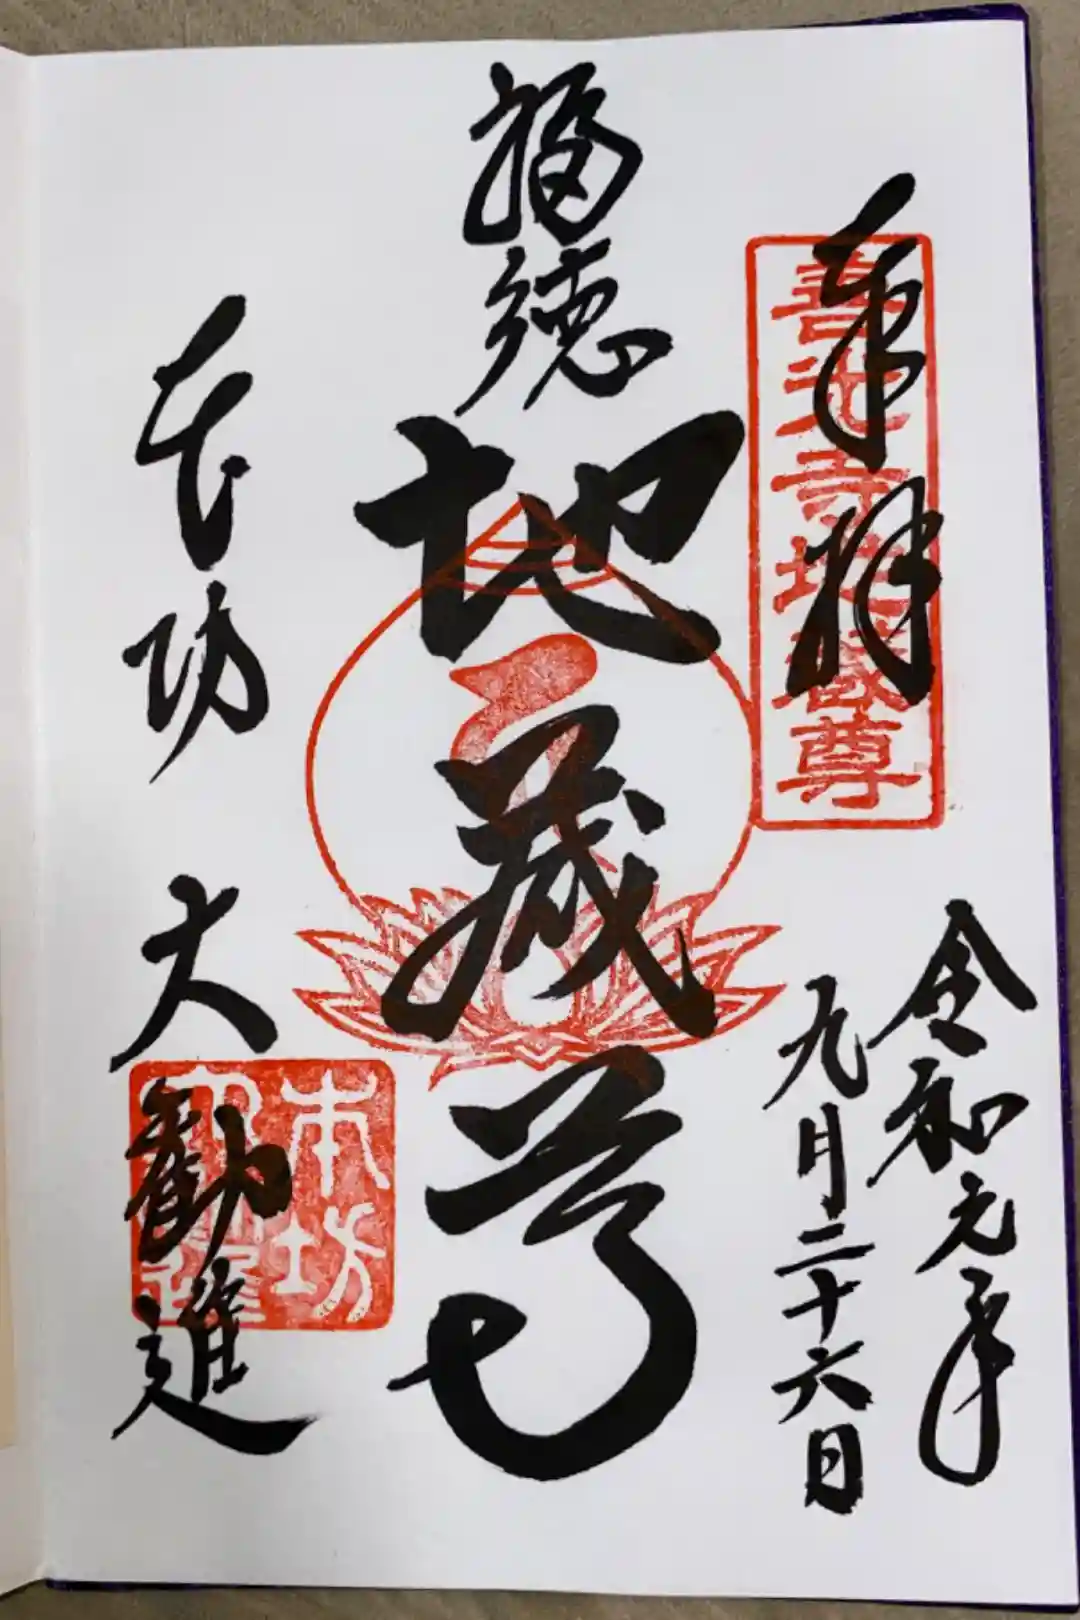 奉拝
善光寺地蔵尊
令和元年
九月二十六日
福徳
地蔵尊
本坊 大勧進
本坊